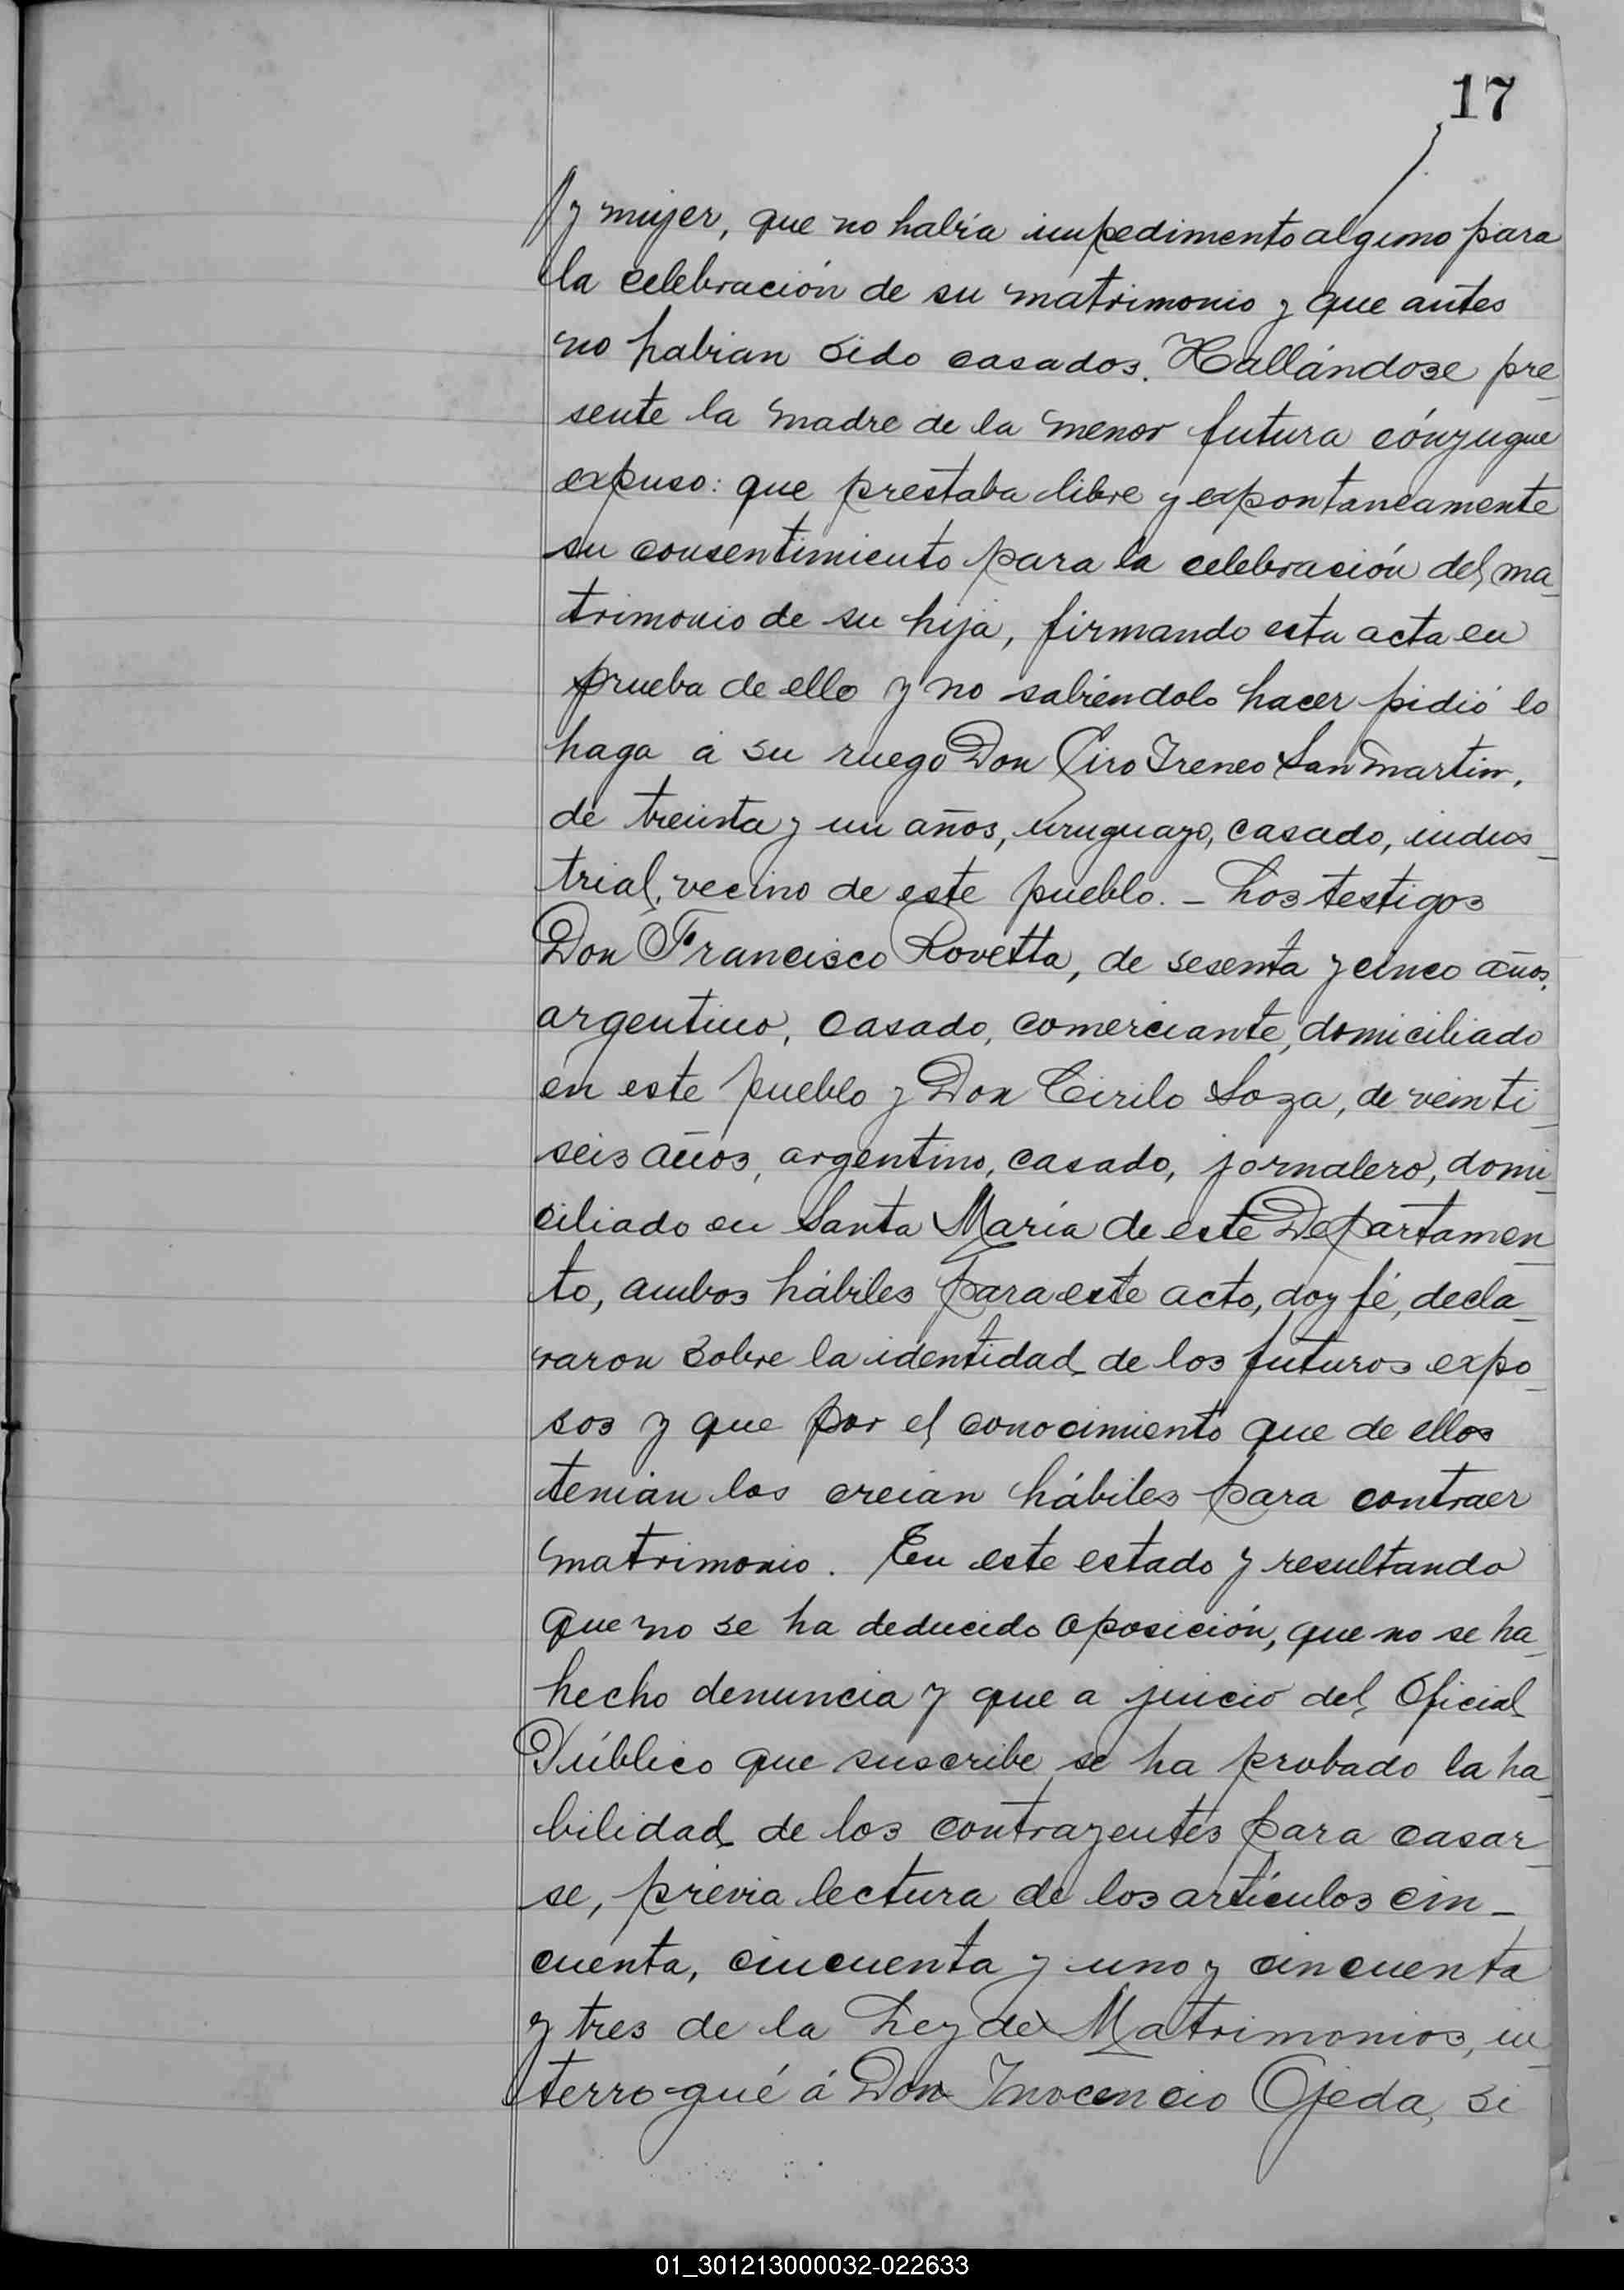 17
y mujer, que no había impedimento alguno para
la celebración de su matrimonio y que antes
no habian sido casados. Hallándose pre_
sente la madre de la menor futura cónyugue
expuso: que prestaba libre y expontaneamente
su consentimiento para la celebración del ma_
trimonio de su hija, firmando esta acta en
prueba de ello y no sabiéndolo hacer pidió lo
haga á su ruego Don Ciro Ireneo San Martin,
de treinta y un años, uruguayo, casado, indus_
trial, vecino de este pueblo. _ Los testigos
Don Francisco Rovetta, de sesenta y cinco años,
argentino, casado, comerciante, domiciliado
en este pueblo y Don Cirilo Soza, de veinti_
seis años, argentino, casado, jornalero, domi_
ciliado en Santa María de este Departamen_
to, ambos hábiles para este acto, doy fé, decla_
raron sobre la identidad de los futuros expo_
sos y que por el conocimiento que de ellos
tenían los creian hábiles para contraer
matrimonio. En este estado y resultando
que no se ha deducido oposición, que no se ha_
hecho denuncia y que a juicio del Oficial
Público que suscribe se ha probado la ha_
bilidad de los contrayentes para casar_
se, previa lectura de los artículos cin_
cuenta, cincuenta y uno y cincuenta
y tres de la Ley de Matrimonios, in_
terrogué á Don Inocencio Ojeda, si
01_301213000032-022633